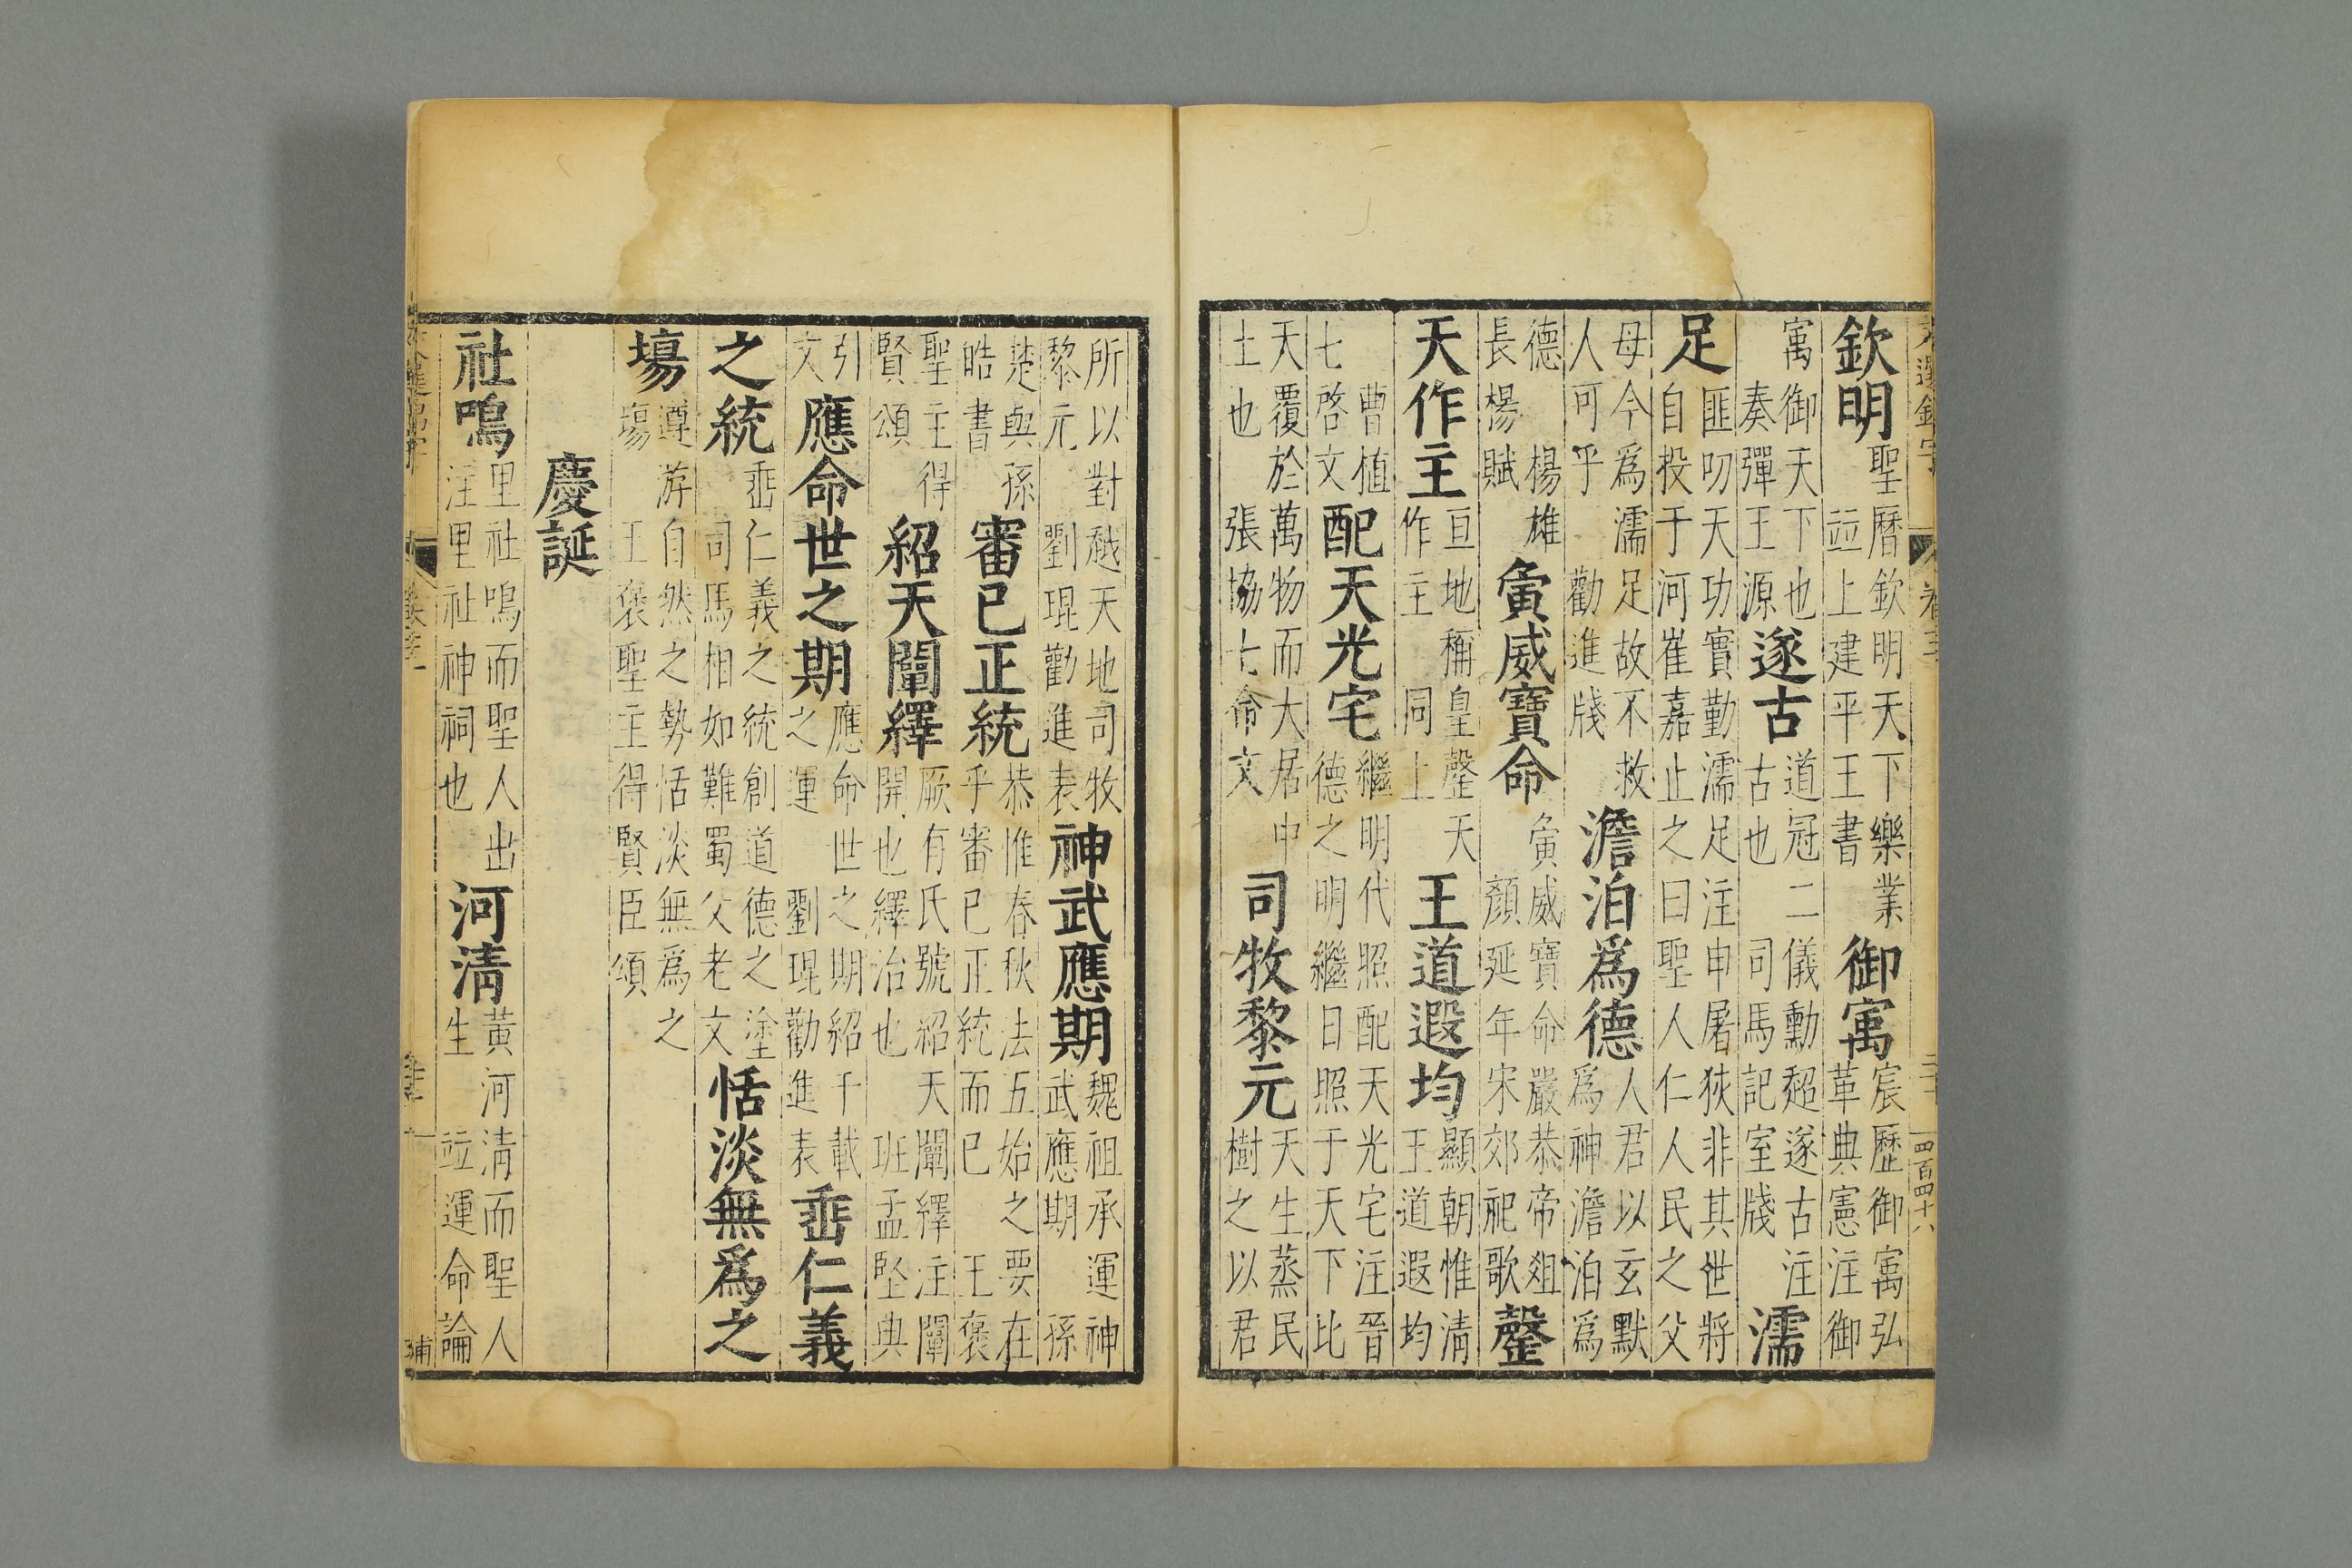 文選錦字 四百四十八
欽明 聖曆欽明天下樂業 竝上建平王書 御㝢 宸歷御㝢弘 革典憲注御
㝢御天下也 奏彈王源 遂古 道冠二儀勳超遂古注 古也 司馬記室牋 濡
足 匪叨天功實勤濡足注申屠狄非其世將 自投于河崔嘉止之曰聖人仁人民之父
母今爲濡足故不救 人可乎 勸進牋 澹泊爲德 人君以玄默 爲神澹泊爲
德 楊雄 長楊賦 夤威寶命 夤威寶命嚴恭帝爼 顏延年宋郊祀歌 罄
天作主 亘地稱皇罄天 作主 同上 王道遐均 顯朝惟淸 王道遐均
曹植 七啓文 配天光宅 繼明代照配天光宅注晉 德之明繼日照于天下比
天覆於萬物而大居中 土也 張協七命文 司牧黎元 天生蒸民 樹之以君
所以對越天地司牧 黎元 劉琨勸進表 神武應期 魏祖承運神 武應期 孫
楚與孫 皓書 審已正統 恭惟春秋法五始之要在 乎審已正統而已 王褒
聖主得 賢頌 紹天闡繹 厥有氏號紹天闡繹注闡 開也繹治也 班孟堅典
引 文 應命世之期 應命世之期紹千載 之運 劉琨勸進表 垂仁義
之統 垂仁義之統創道德之塗 司馬相如難蜀父老文 恬淡無爲之
塲 遵游自然之勢恬淡無爲之 塲 王褒聖主得賢臣頌
慶誕
社鳴 里社鳴而聖人出 注里社神祠也 河淸 黃河淸而聖人 生 竝運命論
補